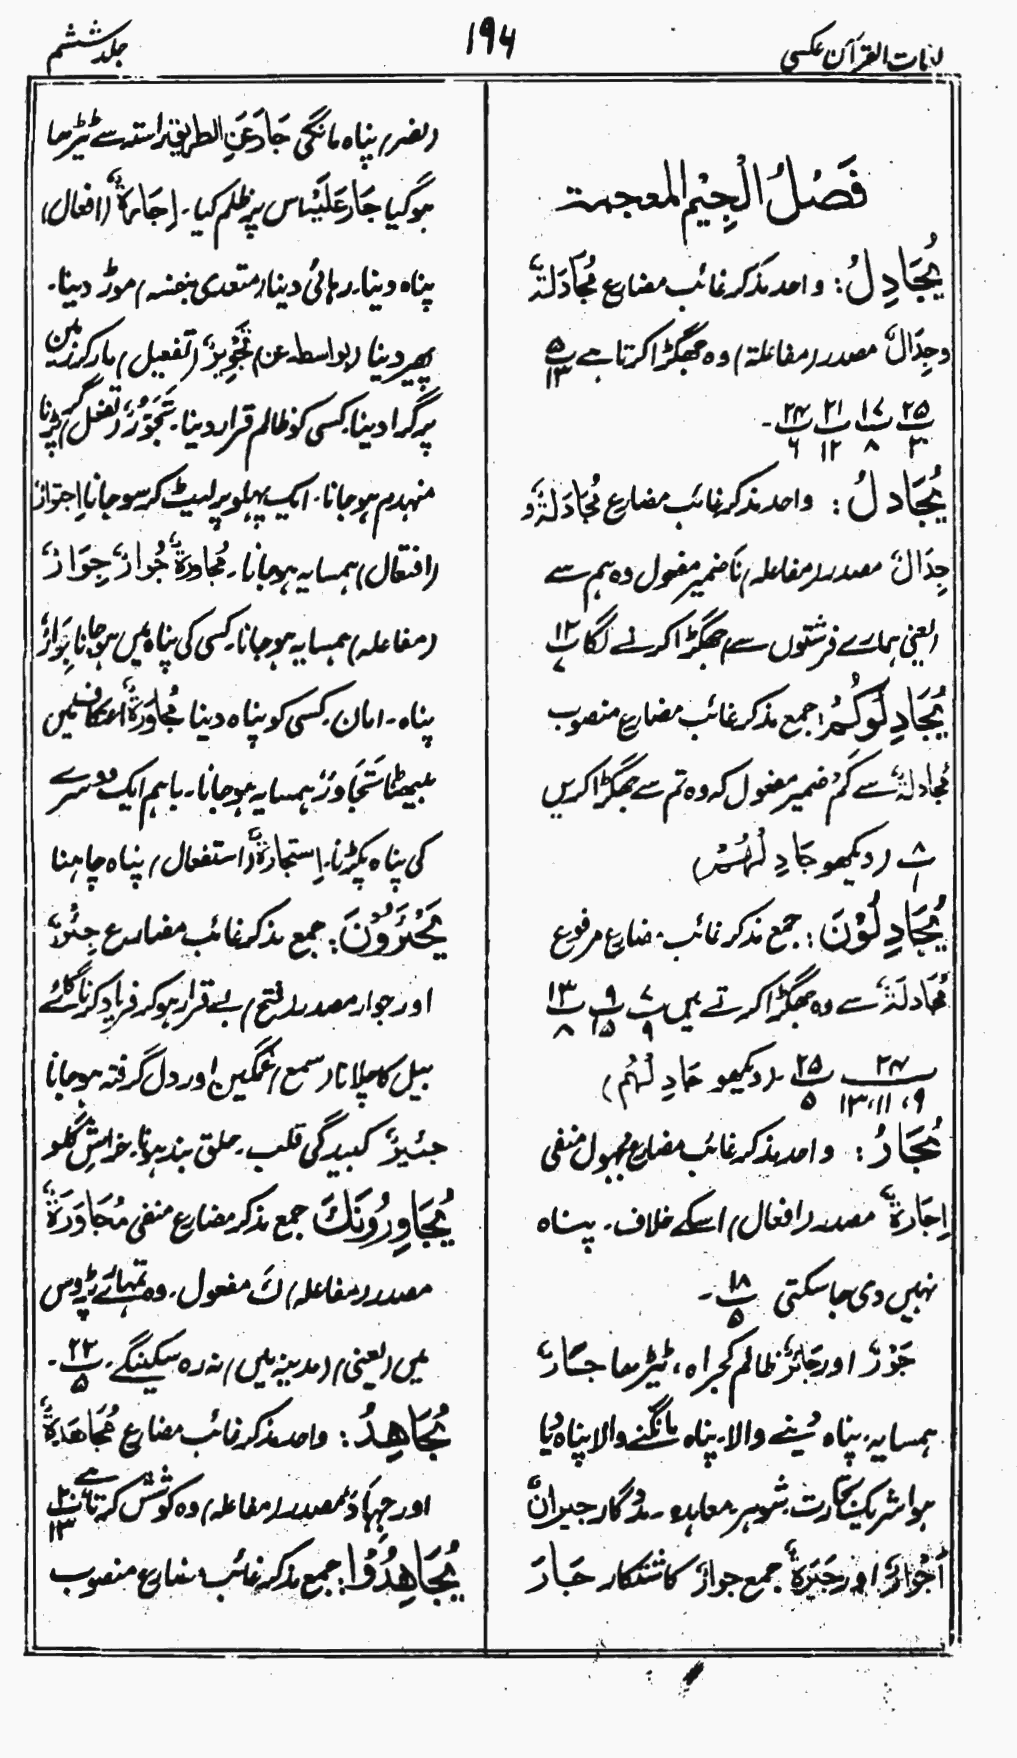 لغات القرآن عکسی
۱۹۴
جلد ششم
فَصْلُ الْجِیْمِ المعجمة
یُجَادِلُ: واحد مذکر غائب مضارع مُجَادَلَةٌ
وجِدَالٌ مصدر (مفاعلة) وہ جھگڑا کرتا ہے ۵/۱۳
۲۵/۳ ۱۷/۸ ۲۱/۱۲ ۲۴/۶ -
یُجَادلُ: واحد مذکر غائب مضارع مُجَادَلَةٌ و
جِدَالٌ مصدر (مفاعلہ) نَا ضمیر مفعول وہ ہم سے
(یعنی ہمارے فرشتوں سے) جھگڑا کرنے لگا ۱۲/۷
یُجَادِلُوْکُمْ: جمع مذکر غائب مضارع منصوب
مُجادلةٌ سے کُمْ ضمیر مفعول کہ وہ تم سے جھگڑا کریں
۸/۱ (دیکھو جَادِلْهُمْ)
یُجَادِلُوْنَ: جمع مذکر غائب مضارع مرفوع
مُجَادلَةٌ سے وہ جھگڑا کرتے ہیں ۷/۹ ۹/۱۵ ۱۳/۸
۲۴/۹،۱۱،۱۳ ۲۵/۵ (دیکھو جَادِلْهُمْ)
یُجَارُ: واحد مذکر غائب مضارع مجہول منفی
اِجَارَةٌ مصدر (افعال) اسکے خلاف۔ پناہ
نہیں دی جا سکتی ۱۸/۵ -
جَوْرٌ اور جَائرٌ ظالم کجراہ، ٹیڑھا جَارٌ
ہمسایہ، پناہ دینے والا، پناہ مانگنے والا پناہ دیا
ہوا شریک تجارت۔ شوہر، معاہد۔ مددگار جیرانٌ
اَجْوَارٌ اور جِیَرَةٌ جمع جوارٌ کاشتکار جَارَ
(نصر) پناہ مانگی جَارَ عَنِ الطریق راستہ سے ٹیڑھا
ہوگیا جَارَ عَلَیْہِ اس پر ظلم کیا۔ اِجَارۃٌ (افعال)
پناہ دینا۔ رہائی دینا (متعدی بنفسہ) موڑ دینا۔
پھیر دینا (بواسطہ عن) تَجْوِیرٌ (تفعیل) مار کر زمین
پر گرا دینا۔ کسی کو ظالم قرار دینا۔ تَجَوُّرٌ (تفعل) گر پڑنا
منہدم ہوجانا۔ ایک پہلو پر لیٹ کر سو جانا اِجتوارٌ
(افتعال) ہمسایہ ہوجانا۔ مُجاورۃٌ جُوارٌ جِوَارٌ
(مفاعلہ) ہمسایہ ہوجانا۔ کسی کی پناہ میں ہوجانا جِوَارٌ
پناہ۔ امان۔ کسی کو پناہ دینا مُجاوَرةٌ اعتکاف میں
بیٹھنا تَجَاوُرٌ ہمسایہ ہوجانا۔ باہم ایک دوسرے
کی پناہ پکڑنا۔ اِستجارةٌ (استفعال) پناہ چاہنا
یَجْئَرُوْنَ: جمع مذکر غائب مضارع جئرٌ
اور جوار مصدر (فتح) بے قرار ہوکر فریاد کرنا گائے
بیل کا چلانا (سمع) غمگین اور دل گرفتہ ہوجانا
جئیزٌ کبیدگی قلب۔ حلق بند ہونا۔ خراش گلو
یُجَاوِرُوْنَكَ جمع مذکر مضارع منفی مُجَاوَرَةٌ
مصدر (مفاعلہ) كَ مفعول۔ وہ تمہارے پڑوس
میں (یعنی) (مدینہ میں) نہ رہ سکینگے۔ ۲۲/۵ -
یُجَاهِدُ: واحد مذکر غائب مضارع مُجَاهَدةٌ
اور جہادٌ مصدر (مفاعلہ) وہ کوشش کرتا ہے ۲۰/۱۳
یُجَاهِدُوْا: جمع مذکر غائب مضارع منصوب